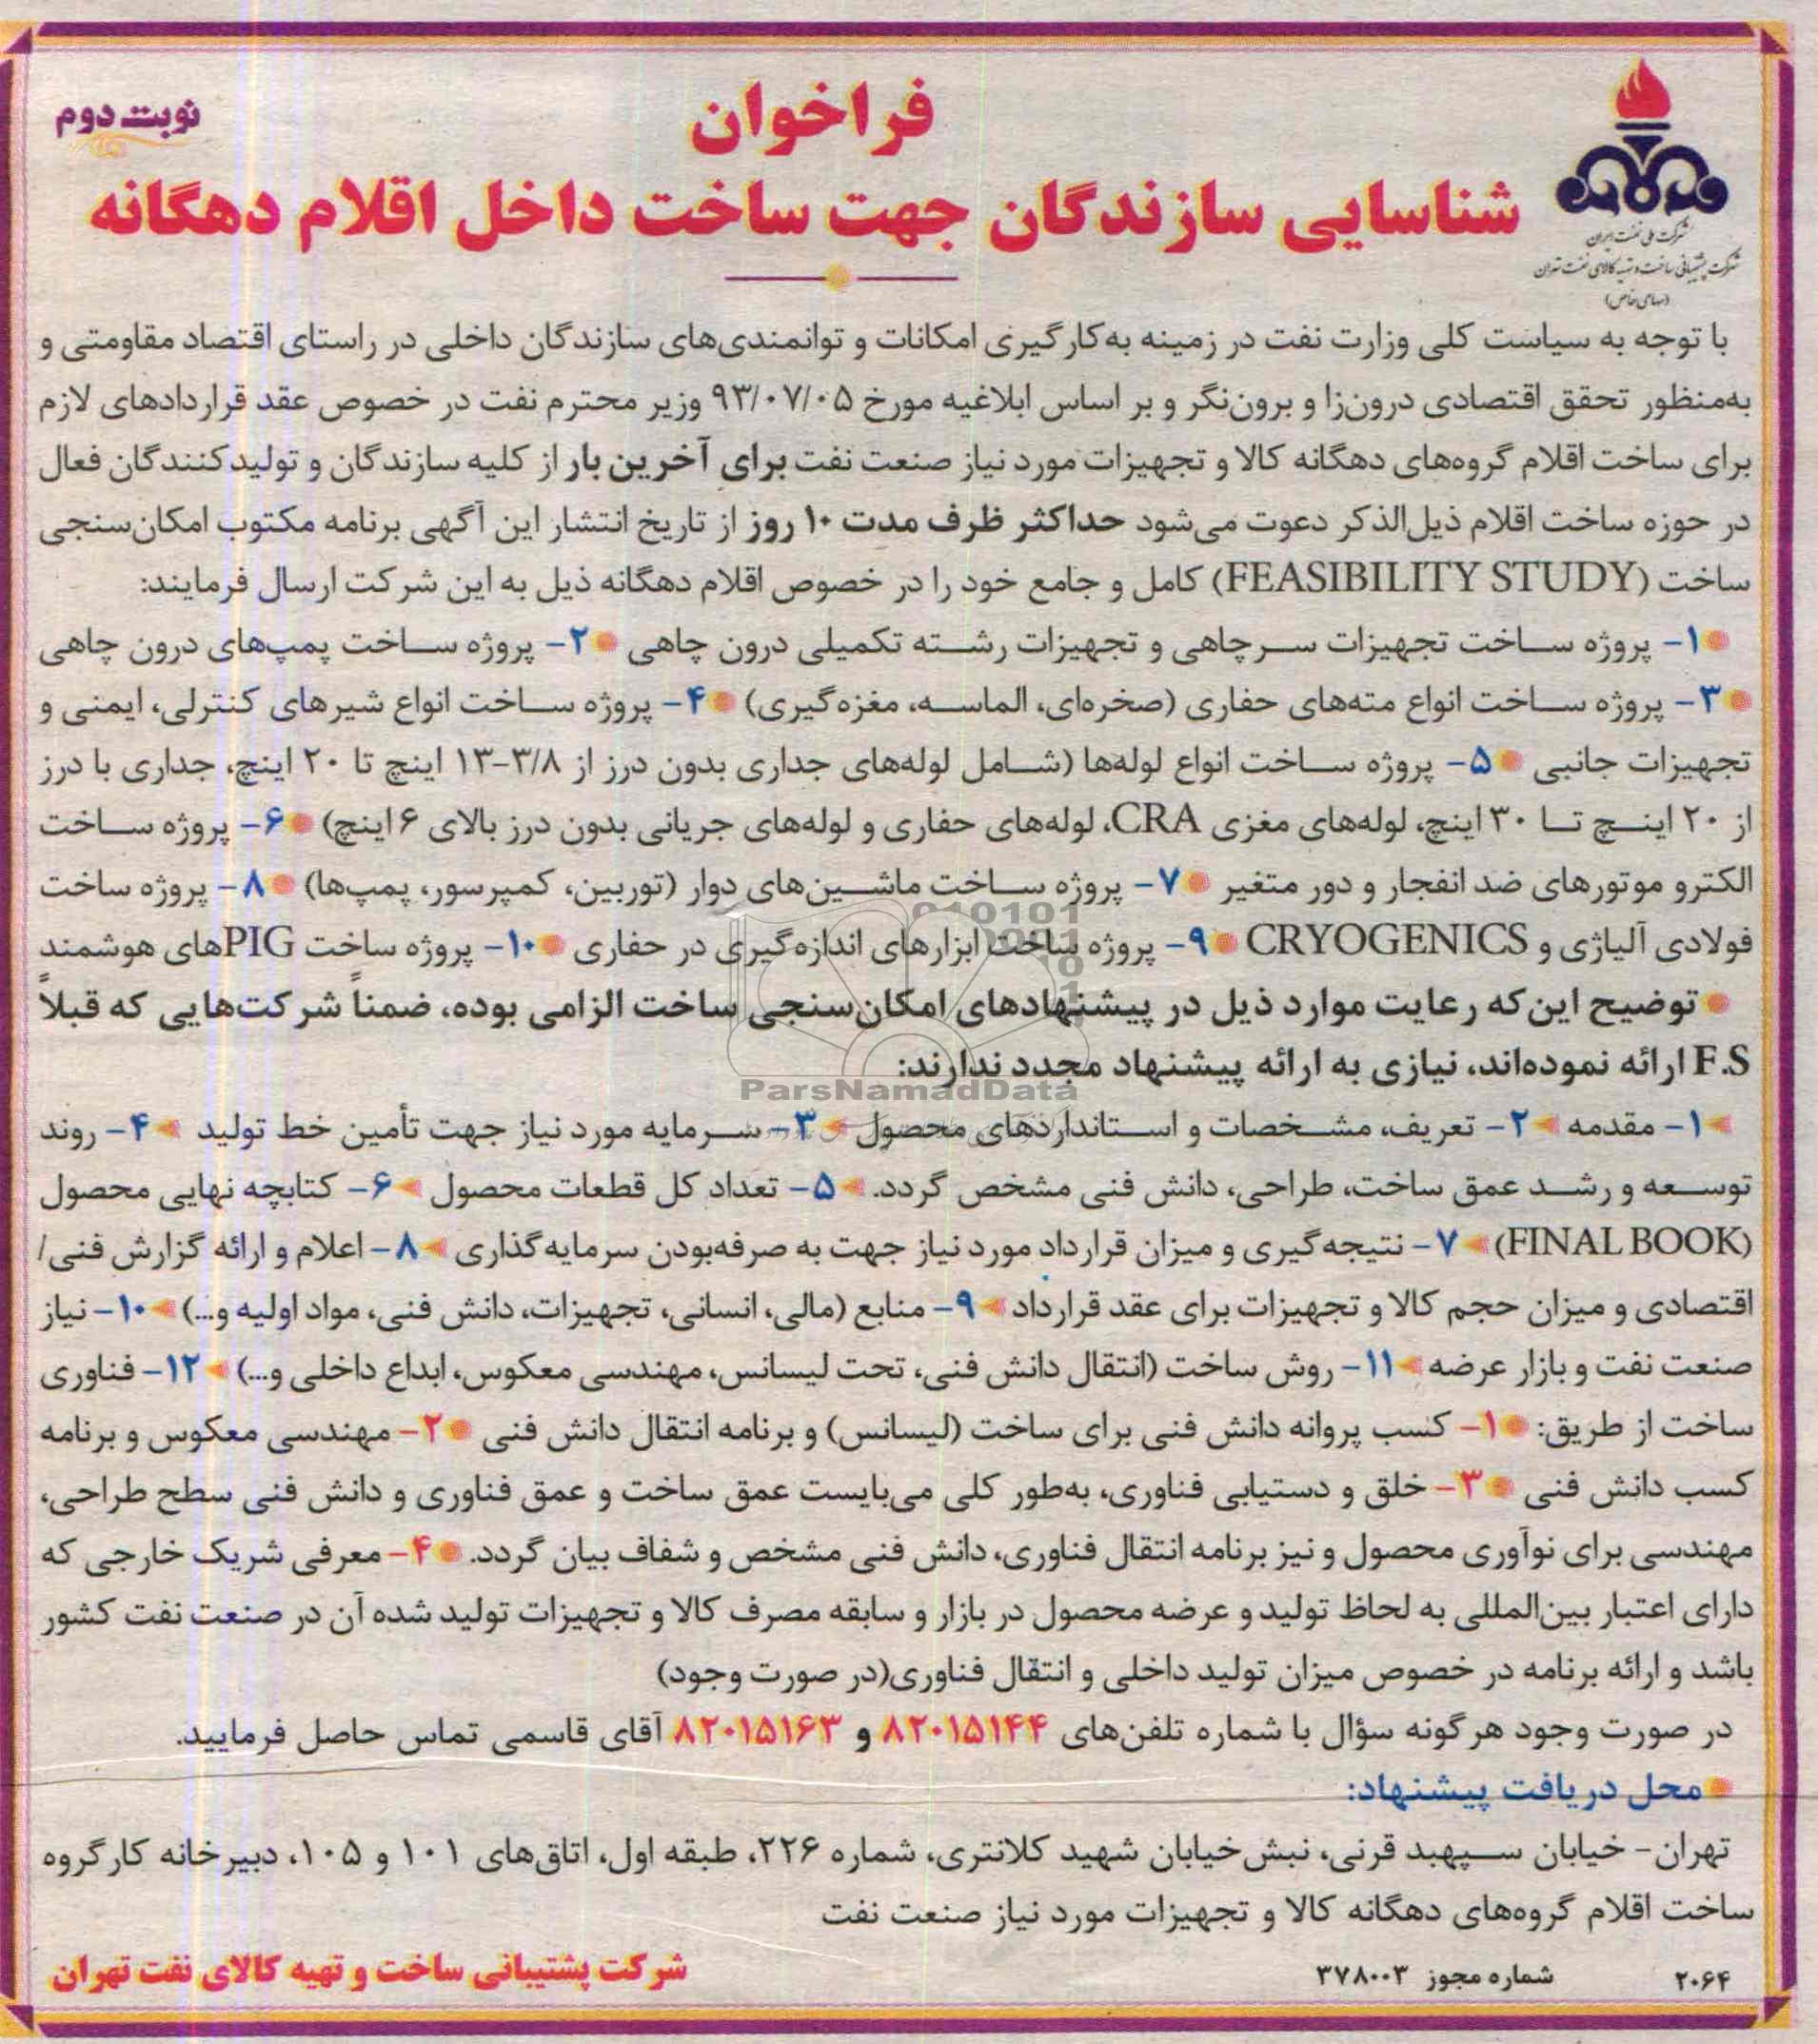 نوبت دوم
فراخوان
شناسایی سازندگان جهت ساخت داخل اقلام دهگانه
شرکت ملی نفت ایران
شرکت پشتیبانی ساخت و تهیه کالای نفت تهران
(سهامی خاص)
با توجه به سیاست کلی وزارت نفت در زمینه به‌کارگیری امکانات و توانمندی‌های سازندگان داخلی در راستای اقتصاد مقاومتی و
به‌منظور تحقق اقتصادی درون‌زا و برون‌نگر و بر اساس ابلاغیه مورخ ۹۳/۰۷/۰۵ وزیر محترم نفت در خصوص عقد قراردادهای لازم
برای ساخت اقلام گروه‌های دهگانه کالا و تجهیزات مورد نیاز صنعت نفت برای آخرین بار از کلیه سازندگان و تولیدکنندگان فعال
در حوزه ساخت اقلام ذیل‌الذکر دعوت می‌شود حداکثر ظرف مدت ۱۰ روز از تاریخ انتشار این آگهی برنامه مکتوب امکان‌سنجی
ساخت (FEASIBILITY STUDY) کامل و جامع خود را در خصوص اقلام دهگانه ذیل به این شرکت ارسال فرمایند:
●۱- پروژه ساخت تجهیزات سرچاهی و تجهیزات رشته تکمیلی درون چاهی ●۲- پروژه ساخت پمپ‌های درون چاهی
●۳- پروژه ساخت انواع مته‌های حفاری (صخره‌ای، الماسه، مغزه‌گیری) ●۴- پروژه ساخت انواع شیرهای کنترلی، ایمنی و
تجهیزات جانبی ●۵- پروژه ساخت انواع لوله‌ها (شامل لوله‌های جداری بدون درز از ۳/۸-۱۳ اینچ تا ۲۰ اینچ، جداری با درز
از ۲۰ اینچ تا ۳۰ اینچ، لوله‌های مغزی CRA، لوله‌های حفاری و لوله‌های جریانی بدون درز بالای ۶ اینچ) ●۶- پروژه ساخت
الکترو موتورهای ضد انفجار و دور متغیر ●۷- پروژه ساخت ماشین‌های دوار (توربین، کمپرسور، پمپ‌ها) ●۸- پروژه ساخت
فولادی آلیاژی و CRYOGENICS ●۹- پروژه ساخت ابزارهای اندازه‌گیری در حفاری ●۱۰- پروژه ساخت PIGهای هوشمند
● توضیح این‌که رعایت موارد ذیل در پیشنهادهای امکان‌سنجی ساخت الزامی بوده، ضمناً شرکت‌هایی که قبلاً
F.S ارائه نموده‌اند، نیازی به ارائه پیشنهاد مجدد ندارند:
ParsNamadData
۱- مقدمه ۲- تعریف، مشخصات و استانداردهای محصول ۳- سرمایه مورد نیاز جهت تأمین خط تولید ۴- روند
توسعه و رشد عمق ساخت، طراحی، دانش فنی مشخص گردد. ۵- تعداد کل قطعات محصول ۶- کتابچه نهایی محصول
(FINAL BOOK) ۷- نتیجه‌گیری و میزان قرارداد مورد نیاز جهت به صرفه‌بودن سرمایه‌گذاری ۸- اعلام و ارائه گزارش فنی/
اقتصادی و میزان حجم کالا و تجهیزات برای عقد قرارداد ۹- منابع (مالی، انسانی، تجهیزات، دانش فنی، مواد اولیه و...) ۱۰- نیاز
صنعت نفت و بازار عرضه ۱۱- روش ساخت (انتقال دانش فنی، تحت لیسانس، مهندسی معکوس، ابداع داخلی و...) ۱۲- فناوری
ساخت از طریق: ●۱- کسب پروانه دانش فنی برای ساخت (لیسانس) و برنامه انتقال دانش فنی ●۲- مهندسی معکوس و برنامه
کسب دانش فنی ●۳- خلق و دستیابی فناوری، به‌طور کلی می‌بایست عمق ساخت و عمق فناوری و دانش فنی سطح طراحی،
مهندسی برای نوآوری محصول و نیز برنامه انتقال فناوری، دانش فنی مشخص و شفاف بیان گردد. ●۴- معرفی شریک خارجی که
دارای اعتبار بین‌المللی به لحاظ تولید و عرضه محصول در بازار و سابقه مصرف کالا و تجهیزات تولید شده آن در صنعت نفت کشور
باشد و ارائه برنامه در خصوص میزان تولید داخلی و انتقال فناوری(در صورت وجود)
در صورت وجود هرگونه سؤال با شماره تلفن‌های ۸۲۰۱۵۱۴۴ و ۸۲۰۱۵۱۶۳ آقای قاسمی تماس حاصل فرمایید.
● محل دریافت پیشنهاد:
تهران- خیابان سپهبد قرنی، نبش خیابان شهید کلانتری، شماره ۲۲۶، طبقه اول، اتاق‌های ۱۰۱ و ۱۰۵، دبیرخانه کارگروه
ساخت اقلام گروه‌های دهگانه کالا و تجهیزات مورد نیاز صنعت نفت
۲۰۶۴ شماره مجوز ۳۷۸۰۰۳ شرکت پشتیبانی ساخت و تهیه کالای نفت تهران